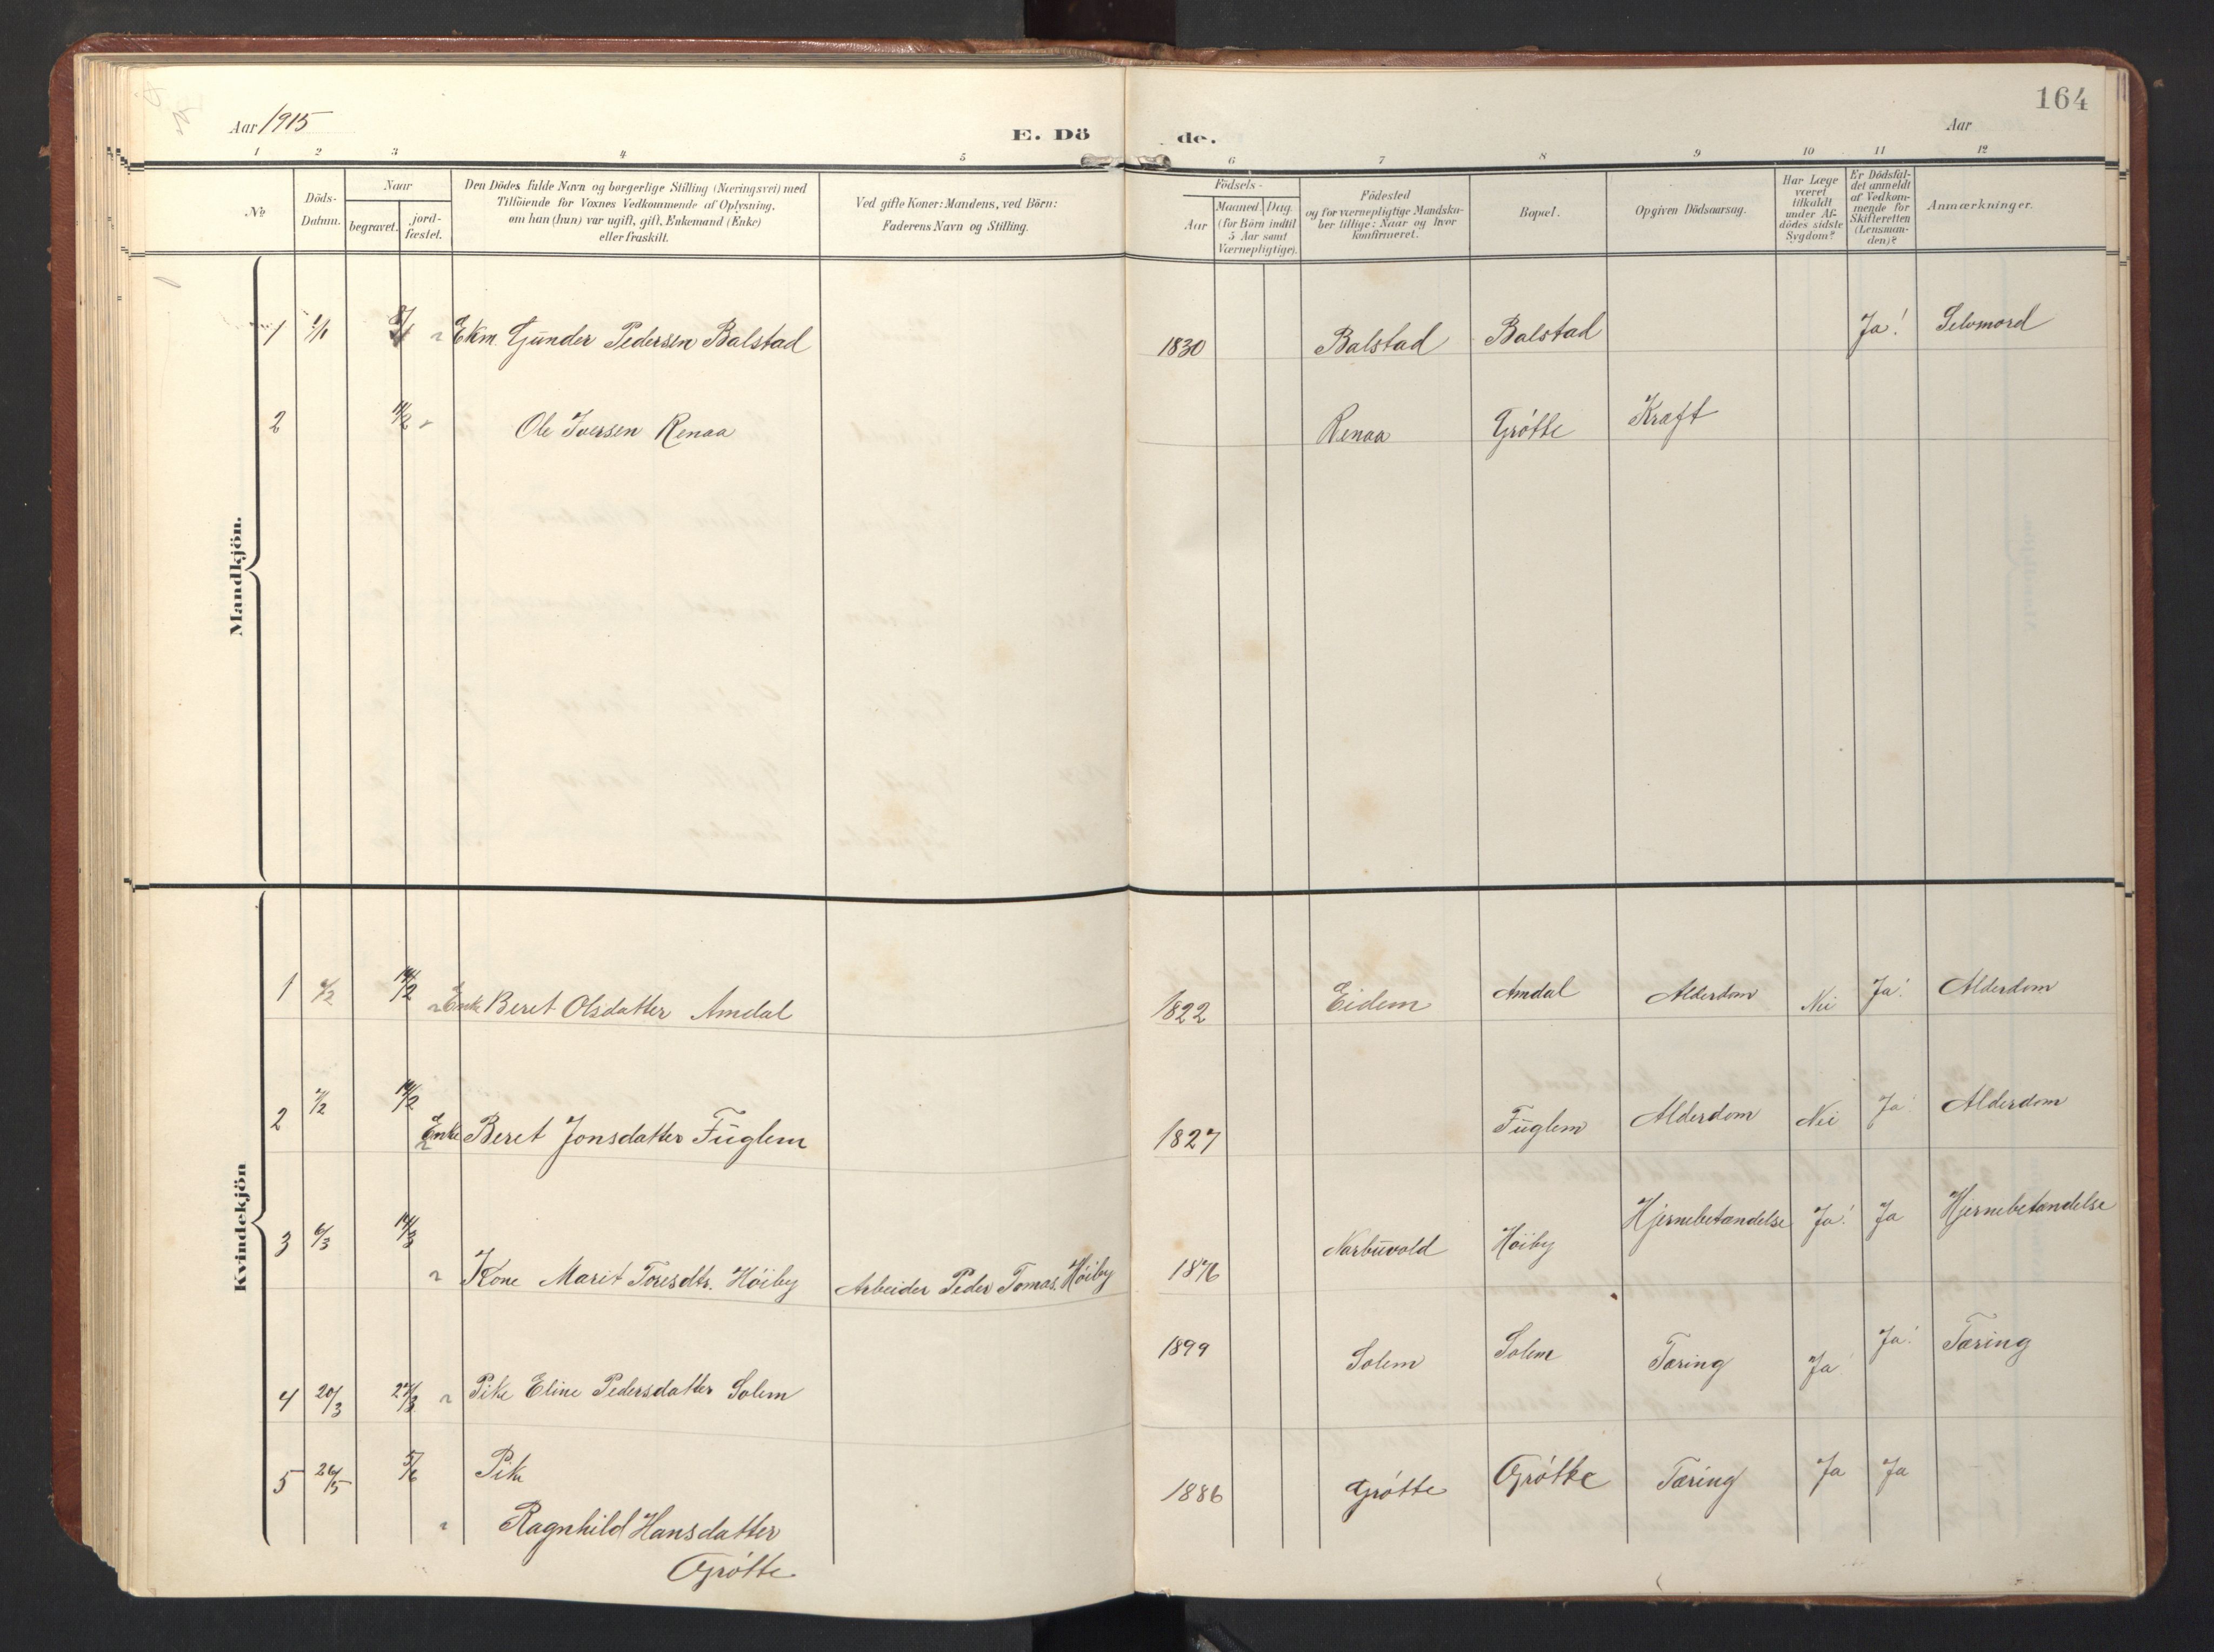 164
Aar 1915
E. Dö de.
Aar
1 2 3 4 5 6 7 8 9 10 11 12
No
Döds-
Datum.
Naar
begravet.
jord-
fæstet.
Den Dödes fulde Navn og borgerlige Stilling (Næringsvei) med
Tilföiende for Voxnes Vedkommende af Oplysning,
om han (hun) var ugift, gift, Enkemand (Enke)
eller fraskilt.
Ved gifte Koner: Mandens, ved Börn:
Faderens Navn og Stilling.
Födsels-
Aar
Maaned. Dag.
(for Börn indtil
5 Aar samt
Værnepligtige).
Födested
og for værnepligtige Mandska-
ber tillige: Naar og hvor
konfirmeret.
Bopæl.
Opgiven Dödsaarsag.
Har Læge
været
tilkaldt
under Af-
dödes sidste
Sygdom?
Er Dödsfal-
det anmeldt
af Vedkom-
mende for
Skifteretten
(Lensman-
den)?
Anmærkninger.
Mandkjön.
1 1/1 Ekm. Gunder Pedersen Balstad 1830 Balstad Balstad Ja! Selvmord
2 Ole Iversen Renaa Renaa Grótte Kraft
Kvindekjön
1 14/2 Enke Beret Olsdatter Amdal 1822 Eidem Amdal Alderdom Nei Ja! Alderdom
2 14/2 Enke Beret Jonsdatter Fuglem 1827 Fuglem Alderdom Nei Ja! Alderdom
3 6/3 14/3 Kone Marit Toresdtr. Höiby Arbeider Peder Tomas. Höiby 1876 Narbuvold Höiby Hjernebetændelse Ja! Ja Hjernebetændelse
4 20/3 27/3 Pike Eline Pedersdatter Solem 1899 Solem Solem Tæring Ja Ja! Tæring
5 26/5 5/6 Pike
Ragnhild Hansdatter
Grótte 1886 Grótte Grótte Tæring Ja Ja